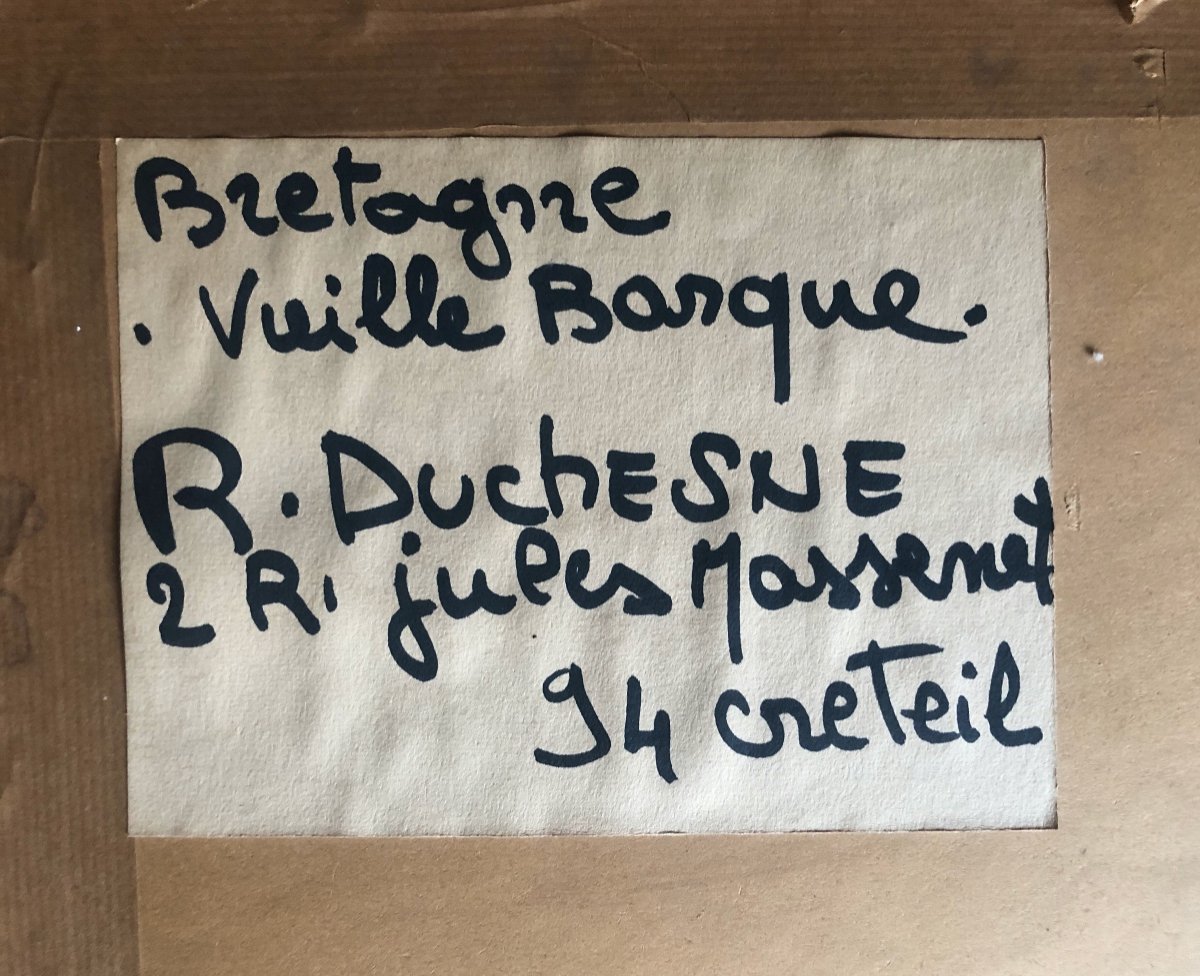 Bretagne
. Vieille Barque.
R. DUchESNE
2 R. jules Massenet
94 creTeil